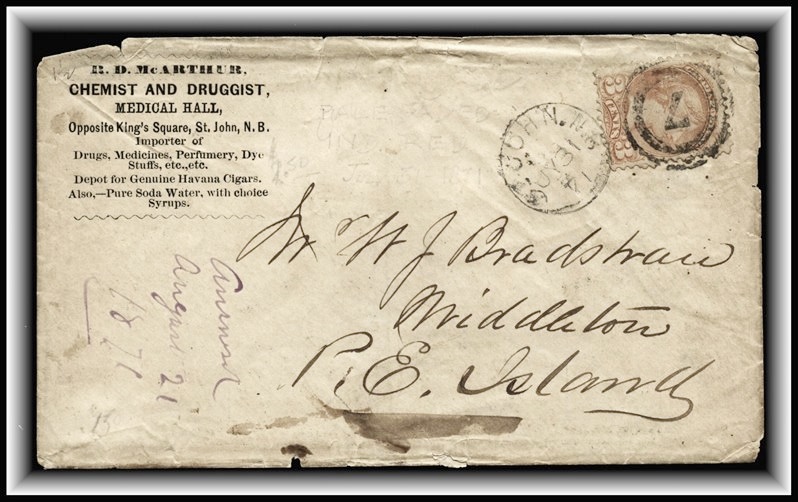 R. D. McARTHUR,
CHEMIST AND DRUGGIST,
MEDICAL HALL,
Opposite King's Square, St. John, N. B.
Importer of
Drugs, Medicines, Perfumery, Dye
Stuffs, etc., etc.
Depot for Genuine Havana Cigars.
Also,—Pure Soda Water, with choice
Syrups.
ST. JOHN. N.B.
JY 31
71
3 CENTS 3
7
Mr W J Bradshaw
Middleton
P. E. Island
August 21
1871